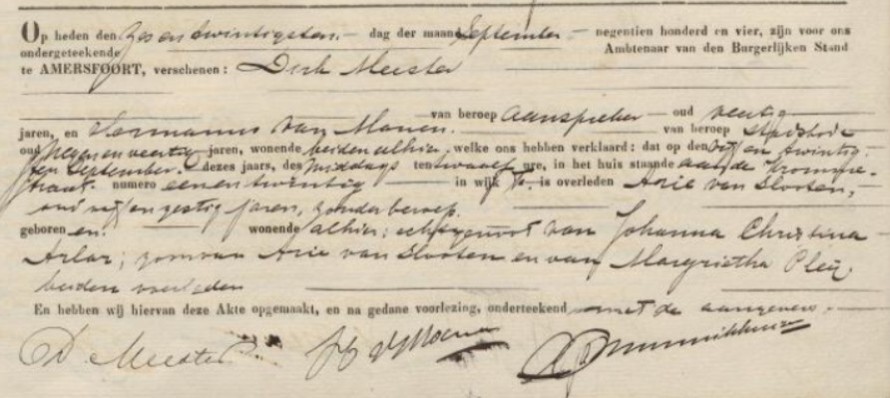 Op heden den Zes en twintigsten dag der maand September negentien honderd en vier, zijn voor ons
ondergeteekende Ambtenaar van den Burgerlijken Stand
te AMERSFOORT, verschenen: Dirk Meester
van beroep Aanspreker oud veertig
jaren, en Hermanus van Manen van beroep stadsbode
oud Negen en veertig jaren, wonende beiden alhier, welke ons hebben verklaard: dat op den vijf en twintig-
sten September dezes jaars, des middags ten twaalf ure, in het huis staande aan de Kromme-
straat numero eenentwintig in wijk is overleden Arie van Slooten,
oud vijf en zestig jaren, zonder beroep.
geboren en wonende alhier; echtgenoot van Johanna Christina
Arlar; zoon van Arie van Slooten en van Margrietha Pleij
beiden overleden
En hebben wij hiervan deze Akte opgemaakt, en na gedane voorlezing, onderteekend met de aangevers.
D. Meester